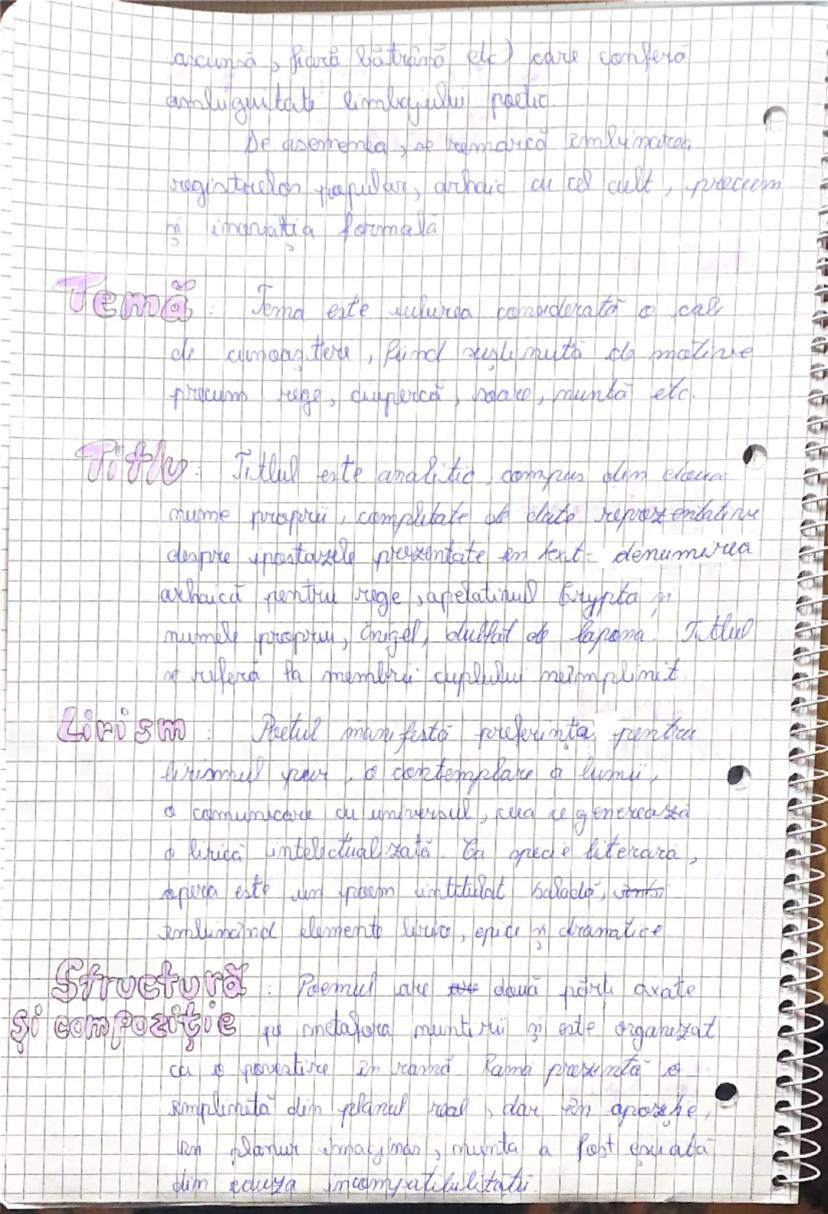 ascunsă, fiară bătrână etc) care conferă
ambiguitate limbajului poetic.
De asemenea, se remarcă îmbinarea
registrelor popular, arhaic cu cel cult, precum
și inovația formală
Temă: Tema este iubirea considerată o cale
de cunoaștere, fiind susținută de motive
precum rege, ciupercă, soare, nuntă etc.
Titlu: Titlul este analitic, compus din două
nume proprii, completate de date reprezentative
despre ipostazele prezentate în text - denumirea
arhaică pentru rege, apelativul Crypto și
numele propriu, Enigel, dublat de lapona. Titlul
se referă la membrii cuplului neîmplinit.
Lirism: Poetul manifestă preferință pentru
lirismul pur, o contemplare a lumii,
o comunicare cu universul, ceea ce generează
o lirică intelectualizată. Ca specie literară,
opera este un poem intitulat baladă,
îmbinând elemente lirice, epice și dramatice
Structură: Poemul are două părți axate
și compoziție pe metafora nunții și este organizat
ca o povestire în ramă. Rama prezintă o
împlinită din planul real, dar în opoziție,
în planul imaginar, nunta a fost eșuată
din cauza incompatibilității.